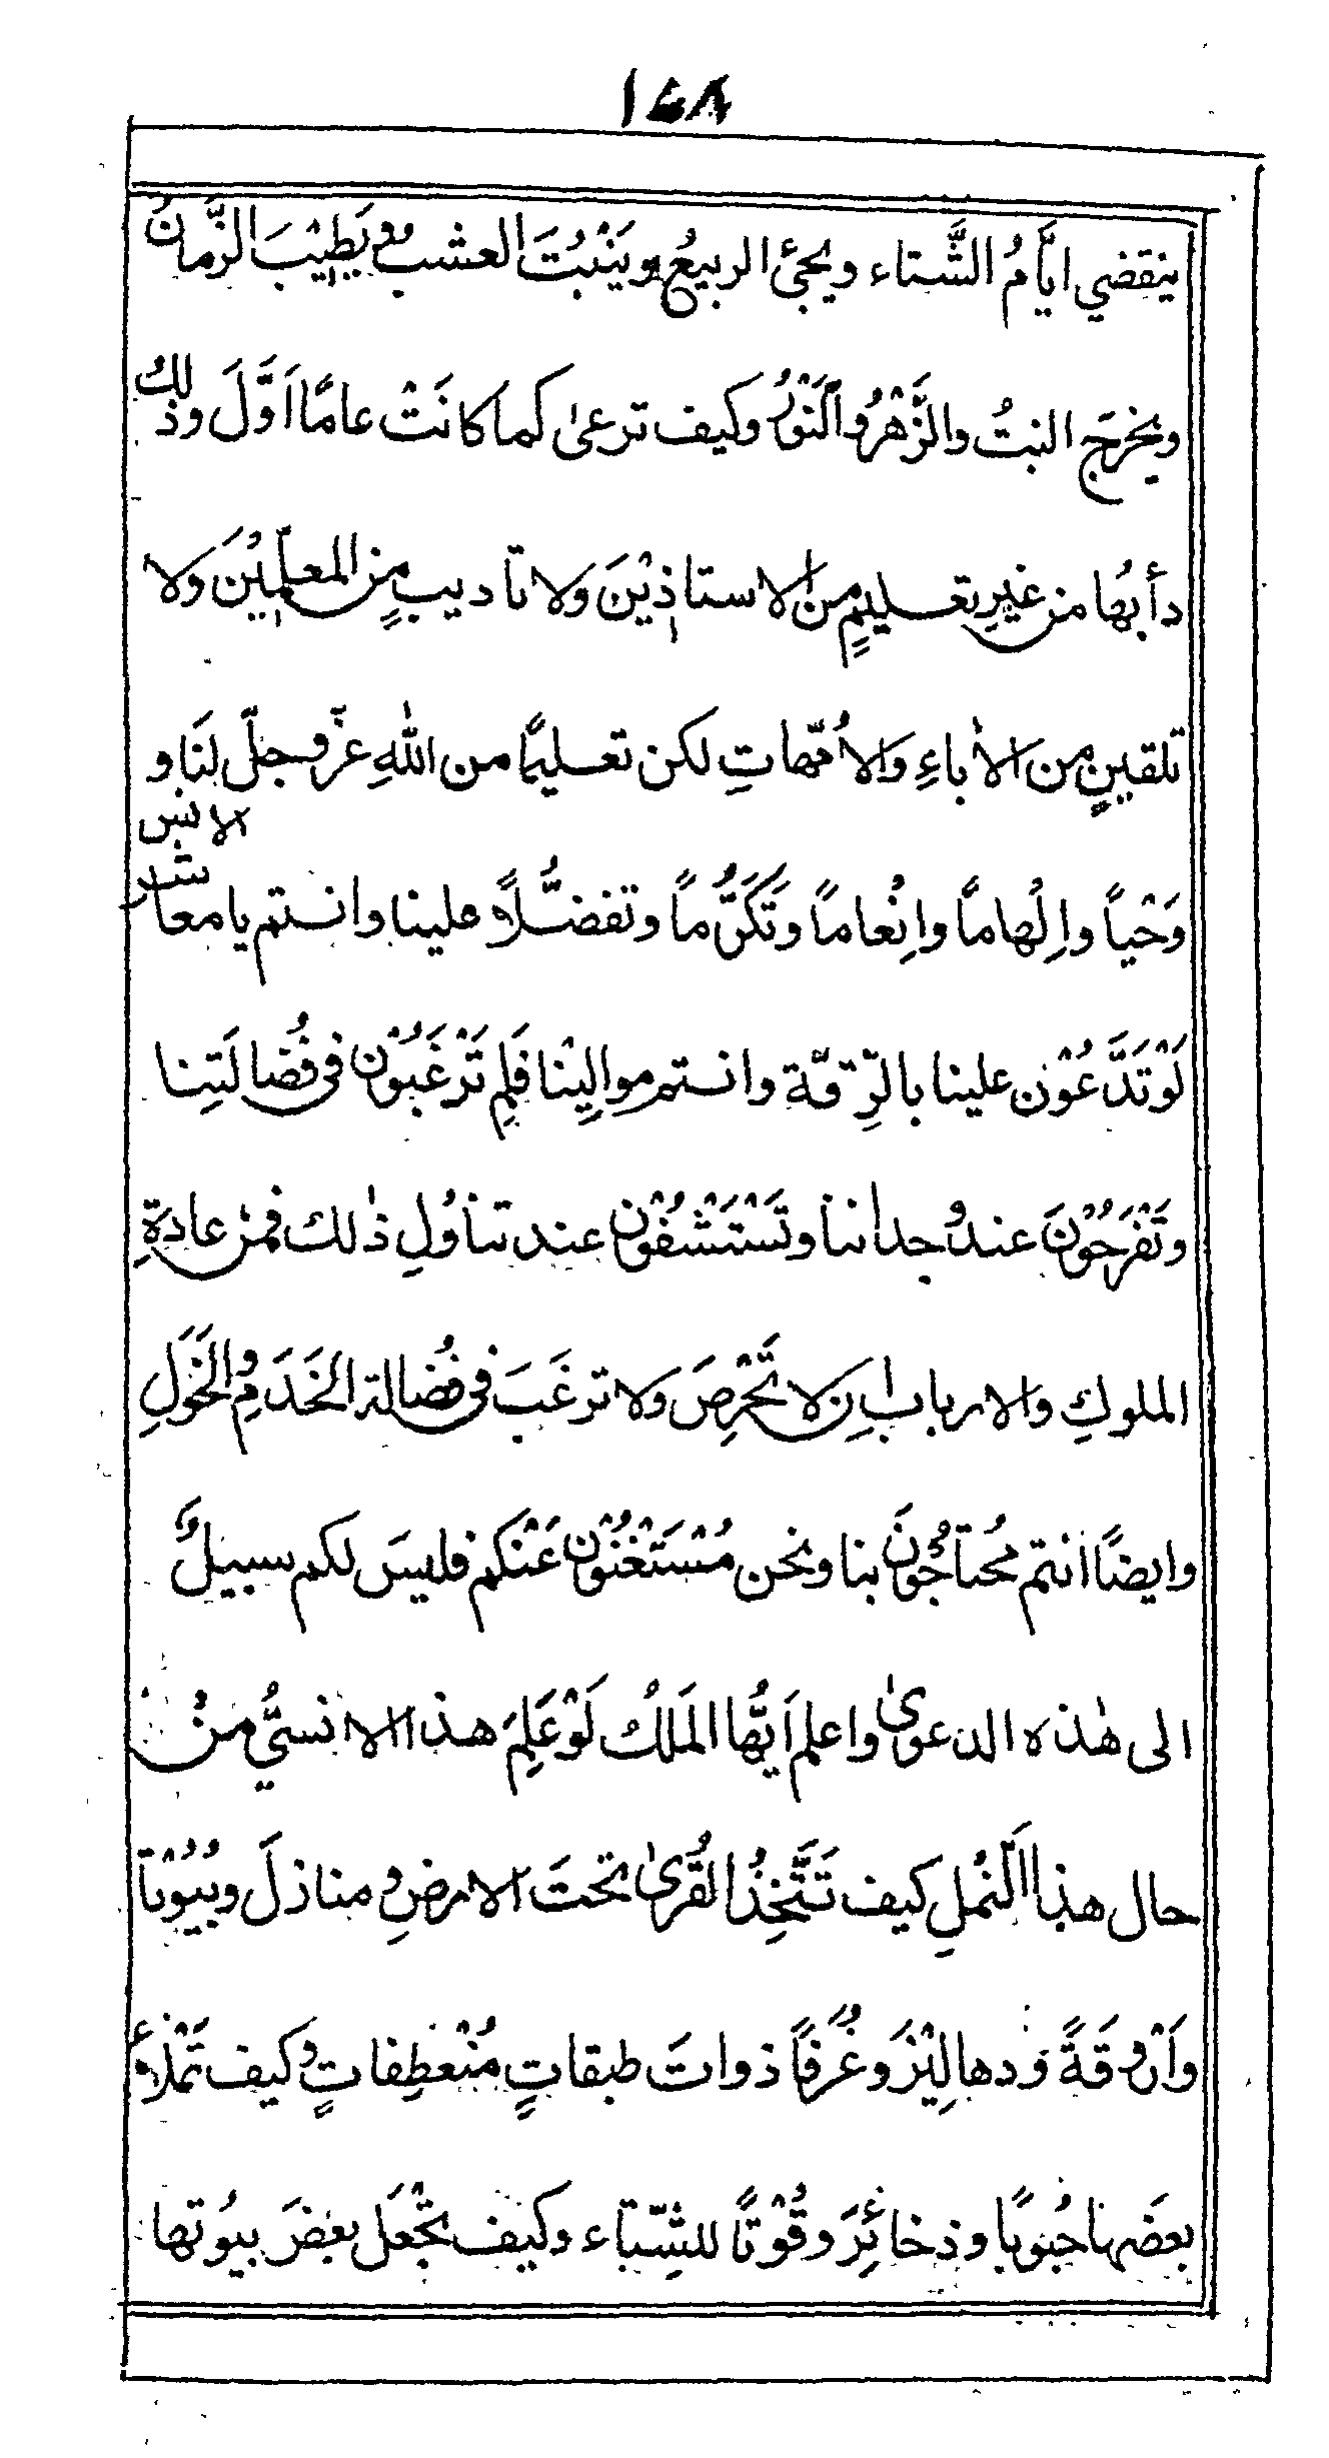 ينقضي ايَّامُ الشَّتاء ويجئ الربيعُ ويَنْبُتَ العشب ويَطِيْبَ الزَّمانُ
ويخرجَ النبتُ والزَّهْرُ والنَّوْرُ وكيف ترعىٰ كما كانَتْ عامًا اَوَّلَ وذلك
دأبُها من غيرِ تعليمٍ من الاستاذِيْنَ وَلا تاديبٍ من المعلّمِيْنَ وَلا
تلقينٍ من الاٰباءِ وَالاُمّهاتِ لكن تعليمًا من اللهِ عزّ وجلّ لنَا و
وَحْياً واِلْهاماً واِنْعاماً وتَكَرُّماً وتفضُّلاً علينا وانتم يا معاشر الانس
لَوْ تَدَّعُوْن علينا بالرِّقّة وانتم موالِيْنا فَلِم تَرْغَبُوْن فى فُضالَتِنا
وتَفْرَحُوْنَ عند وُجداننا وتَسْتَشْفُوْن عند تناوُلِ ذٰلك فمن عادةِ
الملوكِ والارباب اِن لا تَحْرِصَ ولا ترغَبَ فى فُضالة الخَدَمِ والخَوَلِ
وايضًا انتم مُحتاجُوْنَ بنا ونحن مُسْتَغْنُوْن عَنْكم فليسَ لكم سبيلٌ
الى هٰذه الدعوىٰ واعلم اَيُّها المَلكُ لَوْ عَلِمَ هذا الانسيُّ منْ
حال هذا النَّمْلِ كيف تَتَّخِذُ القُرىٰ تحتَ الارضِ منازلَ وبُيُوْتاً
وَاَرْوِقَةً ودهالِيْزَ وغُرَفاً ذواتَ طبقاتٍ مُنْعطِفاتٍ وكيف تَمْلأُ
بعضَها حُبوبًا وذخائِرَ وقُوْتًا للشِّتاء وكيف تجْعَل بعضَ بيوُتها